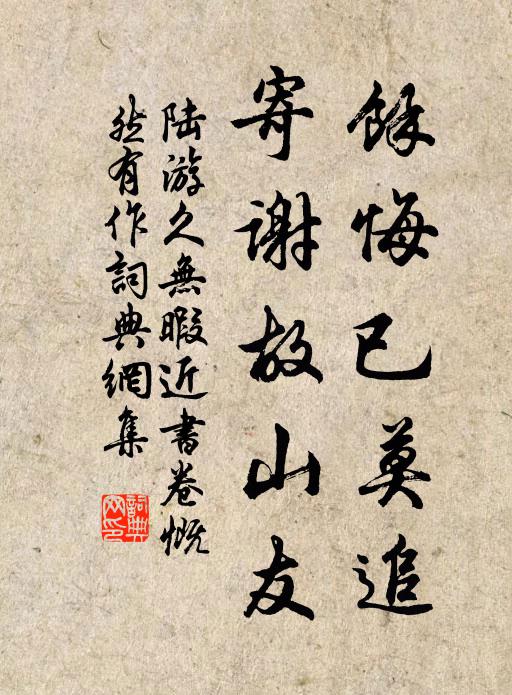 餘悔已莫追
寄謝故山友
陸游久無暇近書卷慨
然有作詞典網集
詞典网印